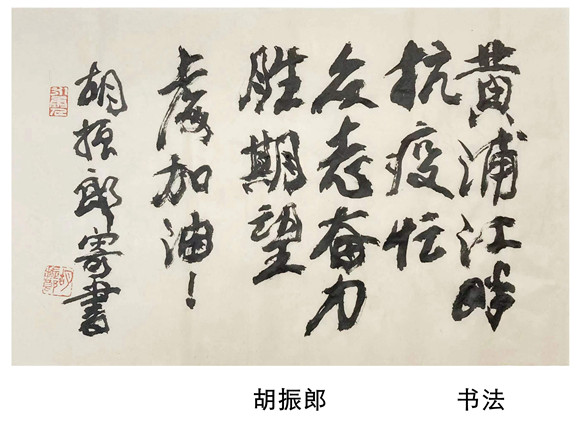 黄浦江畔
抗疫忙
众志奋力
胜期望
上海加油！
胡振郎寄書
胡振郎
书法